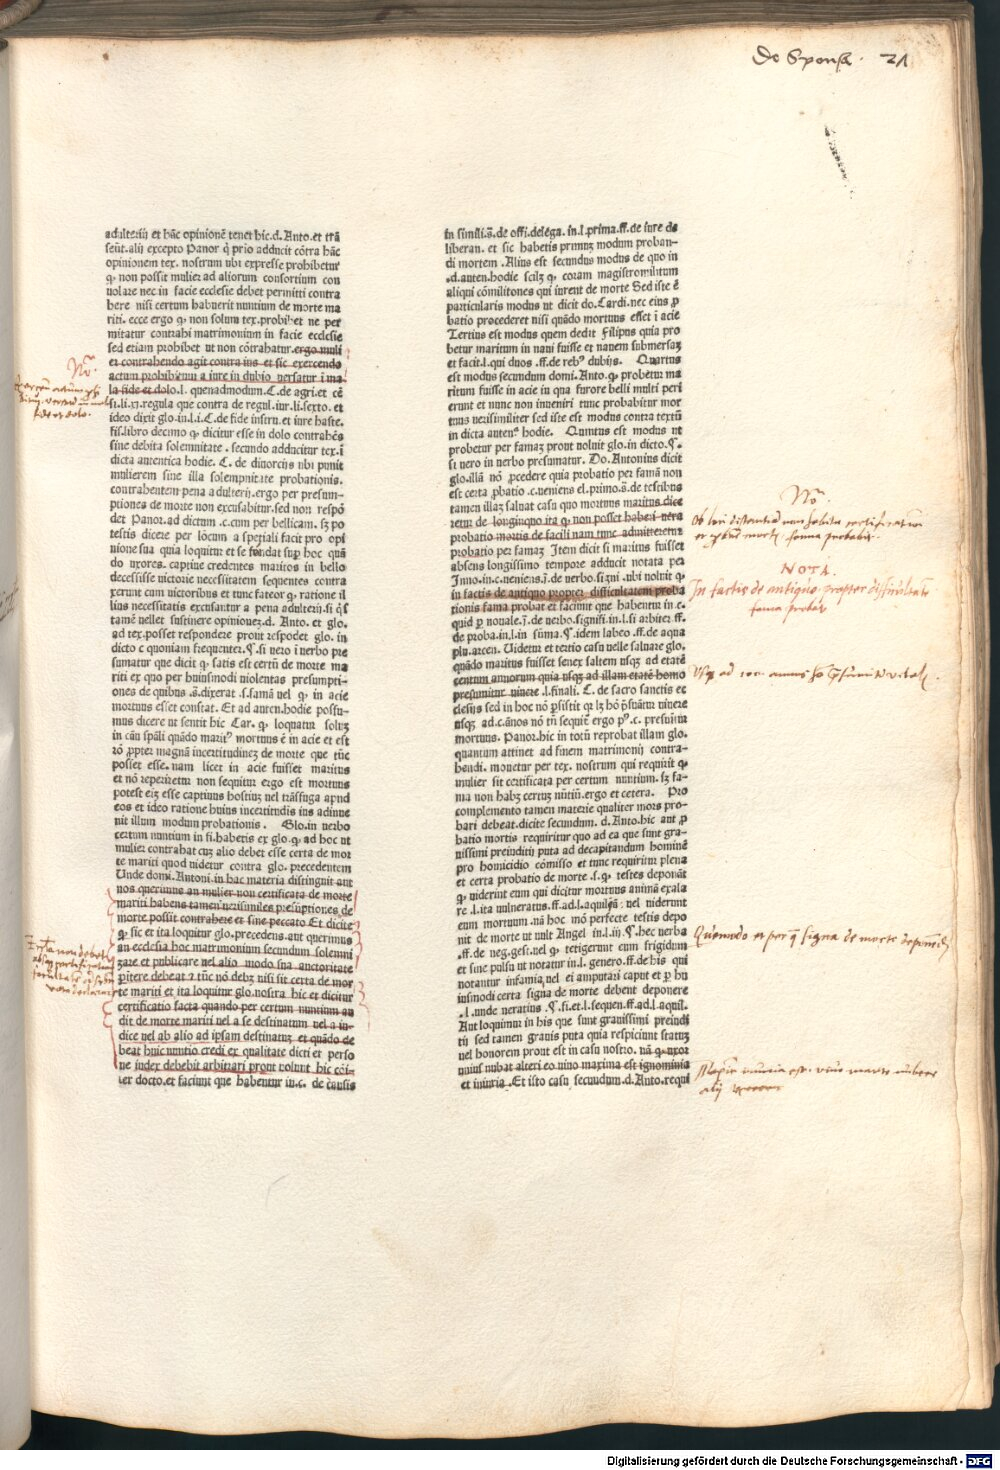 De Sponsa. 21
adulterij et hāc opinionē tenet hic.d. Anto.et trā
seūt.alij excepto Panor q̄ prio adducit cōtra hāc
opinionem tex. nostrum ubi expresse prohibetur
ꝙ non possit mulier ad aliorum consortium con
uolare nec in facie ecclesie debet permitti contra
here nisi certum habuerit nuntium de morte ma
riti. ecce ergo ꝙ non solum tex.prohibet ne per
mitatur contrahi matrimonium in facie ecclesie
sed etiam prohibet ut non cōtrahatur.ergo muli
er contrahendo agit contra ius et sic exercendo
actum prohibitum a iure in dubio versatur ī ma
la fide et dolo.l. quenadmodum.C.de agri.et cē
si.li.xi.regula que contra de regul.iur.li.sexto.et
ideo dixit glo.in.l.i.C.de fide instru.et iure haste.
fis.libro decimo ꝙ dicitur esse in dolo contrahēs
sine debita solemnitate. secundo adducitur tex.ī
dicta autentica hodie. C. de diuorcijs ubi punit
mulierem sine illa solempnitate probationis.
contrahentem pena adulterij.ergo per presum-
ptiones de morte non excusabitur.sed non respō
det Panor.ad dictum .c.cum per bellicam. sꝫ po
testis dicere per locum a speziali facit pro opi
nione sua quia loquitur et se fundat sup hoc quā
do uxores. captiue credentes maritos in bello
decessisse victorie necessitatem sequentes contra
xerunt cum victoribus et tunc fateor ꝙ ratione il
lius necessitatis excusantur a pena adulterij.si q̄s
tamē nellet sustinere opinionez.d. Anto. et glo.
ad tex.posset respondere prout respodet glo. in
dicto c quoniam frequenter.¶.si vero ī verbo pre
sumatur que dicit ꝙ satis est certū de morte ma
riti ex quo per huiusmodi violentas presumpti-
ones de quibus .ā.dixerat .s.famā uel ꝙ in acie
mortuus esset constat. Et ad auten.hodie possu-
mus dicere ut sentit hic Car. ꝙ loquatur soluꝫ
in cāu spāli quādo marit' mortuus ē in acie et est
rō ꝓpter magnā incertitudineꝫ de morte que tūc
posset esse.nam licet in acie fuisset maritus
et nō reperiretur non sequitur ergo est mortuus
potest eiꝫ esse captiuus hostiuꝫ uel trāsfuga apud
eos et ideo ratione huius incertitudis ius adinue
nit illum modum probationis. Glo.in verbo
certum nuntium in fi.habetis ex glo.ꝙ ad hoc ut
mulier contrahat cuꝫ alio debet esse certa de mor
te mariti quod videtur contra glo. precedentem
Unde domi. Antoni.in hac materia distinguit aut
nos querimus an mulier non certificata de morte
mariti habens tamen uerisimiles presūptiones de
morte possit contrahere et sine peccato Et dicite
ꝙ sic et ita loquitur glo.precedens.aut querimus
an ecclesia hoc matrimonium secundum solemni
zare et publicare uel alio modo sua auctoritate
p̄itere debeat ⁊ tūc nō debꝫ nisi sit certa de mor
te mariti et ita loquitur glo.nostra hic et dicitur
certificatio facta quando per certum nuntium au
dit de morte mariti uel a se destinatum uel a iu-
dice uel ab alio ad ipsam destinatuꝫ et quādo de
beat huic nuntio credi ex qualitate dicti et perso
ne iudex debebit arbitrari prout volunt hic cōi-
ter docto.et faciunt que habentur in.c. de causis
in simili.ā.de offi.delega. in.l.prima.ff.de iure de
liberan. et sic habetis primuꝫ modum proban-
di mortem .Alius est secundus modus de quo in
.d.auten.hodie scilꝫ ꝙ. coram magistromilitum
aliqui cōmilitones qui iurent de morte Sed iste ē
particularis modus ut dicit do.Cardi.nec eius ꝓ
batio procederet nisi quādo mortuus esset ī acie
Tertius est modus quem dedit Filipus quia pro
betur maritum in naui fuisse et nauem submersaꝫ
et facit.l.qui duos .ff.de reb' dubijs. Quartus
est modus secundum domi. Anto.ꝙ probetur ma
ritum fuisse in acie in qua furore belli multi peri
erunt et nunc non inueniri tunc probabitur mor
tuus verisimiliter sed iste est modus contra textū
in dicta auten. hodie. Quintus est modus ut
probetur per famaꝫ prout uoluit glo.in dicto.¶.
si uero in uerbo presumatur. Do. Antonius dicit
glo.illā nō ꝓcedere quia probatio per famā non
est certa ꝓbatio .c.ueniens el.primo.ā.de testibus
tamen illaꝫ saluat casu quo mortuus maritus dice
retur de longinquo ita ꝙ non posset haberi uera
probatio mortis de facili nam tunc admitteretur
probatio per famaꝫ Item dicit si maritus fuisset
absens longissimo tempore adducit notata per
Inno.in.c.ueniens.j.de uerbo.si.ꝫni .ubi uoluit ꝙ
in factis de antiquo propteꝫ difficultatem proba
tionis fama probat et faciunt que habentur in.c.
quid ꝑ nouale.j.de uerbo.signifi.in.l.si arbiter ff.
de proba.in.l.in sūma.¶.idem labeo .ff.de aqua
plu.arcen. Uidetur et tertio casu uelle saluare glo.
quādo maritus fuisset senex saltem usqꝫ ad etatē
centum annorum quia usqꝫ ad illam etatē homo
presumitur uiuere .l.finali. C. de sacro sanctis ec
clesijs sed in hoc nō ꝑsistit qꝛ lꝫ hō p̄suātur uiuere
usqꝫ ad.c.ānos nō tn̄ sequit̄ ergo p'.c. presuītur
mortuus. Panor.hic in totū reprobat illam glo.
quantum attinet ad finem matrimonij contra-
hendi. mouetur per tex. nostrum qui requirit ꝙ
mulier sit certificata per certum nuntium.sꝫ fa-
ma non habꝫ certuꝫ nūtiū.ergo et cetera. Pro
complemento tamen materie qualiter mors pro-
bari debeat.dicite secundum. d.Anto.hic aut ꝓ
batio mortis requiritur quo ad ea que sunt gra-
uissimi preiuditij puta ad decapitandum hominē
pro homicidio cōmisso et tunc requiritur plena
et certa probatio de morte .s.ꝙ testes deponāt
ꝙ. uiderint eum qui dicitur mortuus animā exala
re .l.ita uulneratus.ff.ad.l.aquil'. uel uiderunt
eum mortuum .nā hoc mō perfecte testis depo
nit de morte ut uult Angel in.l.iij.¶.hec uerba
.ff.de neg.gest.uel ꝙ tetigerunt eum frigidum
et sine pulsu ut notatur in.l. genero.ff.de his qui
notantur infamia uel ei amputari caput et ꝑ hu
iusmodi certa signa de morte debent deponere
.l.unde neratius .¶.si.et.l.sequen.ff.ad.l.aquil.
Aut loquimur in his que sunt grauissimi preiudi
tij sed tamen grauis puta quia respiciunt statuꝫ
uel honorem prout est in casu nostro. nā ꝙ uxor
unius nubat alteri eo uiuo maxima est ignominia
et iniuria .Et isto casu secundum.d.Anto.requi
No.
No.
NOTA.
In factis de antiquo propter difficultatē
fama probat